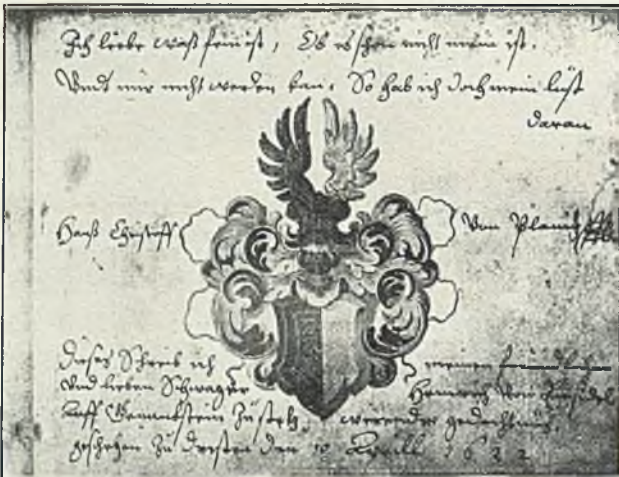 Ich liebe waß fein ist, Ob es schon nicht mein ist,
Undt mir nicht werden kan, So hab ich doch mein lust
daran
Hanß Christoff Von Planitz
Dieses Schreib ich meinen freundlichen
Und lieben Schwager Heinrich Von Einsidel
gedechtnüs,
geschehen Zu Dresden den 10 Aprill 1622